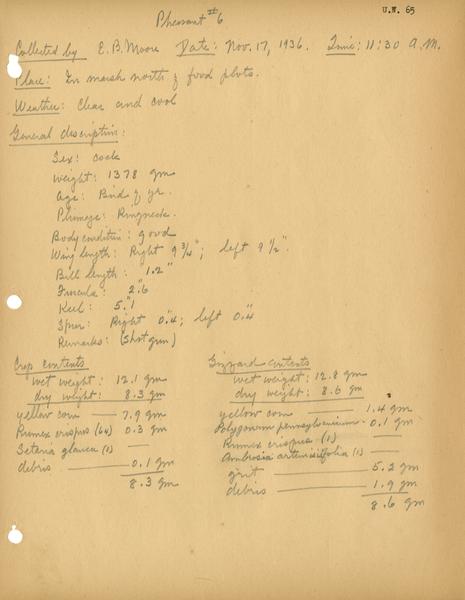 U.N. 65
Pheasant #6
Collected by E.B. Moore Date: Nov. 17, 1936. Time: 11:30 A.M.
Place: In marsh north of food plots.
Weather: Clear and cool
General description:
Sex: cock
Weight: 1378 gm
Age: Bird of yr.
Plumage: Ringneck.
Body condition: good
Wing length: Right 9 3/4"; left 9 1/2".
Bill length: 1.2"
Furcula: 2".6
Keel: 5".1
Spur: Right 0".4; left 0".4
Remarks: (Shot gun)
Crop contents
wet weight: 12.1 gm
dry weight: 8.3 gm
yellow corn — 7.9 gm
Rumex crispus (64) 0.3 gm
Setaria glauca (1) —
debris — 0.1 gm
8.3 gm
Gizzard contents
wet weight: 12.8 gm
dry weight: 8.6 gm
yellow corn — 1.4 gm
Polygonum pennsylvanicum — 0.1 gm
Rumex crispus (1) —
Ambrosia artemisiifolia (1) —
grit — 5.2 gm
debris — 1.9 gm
8.6 gm